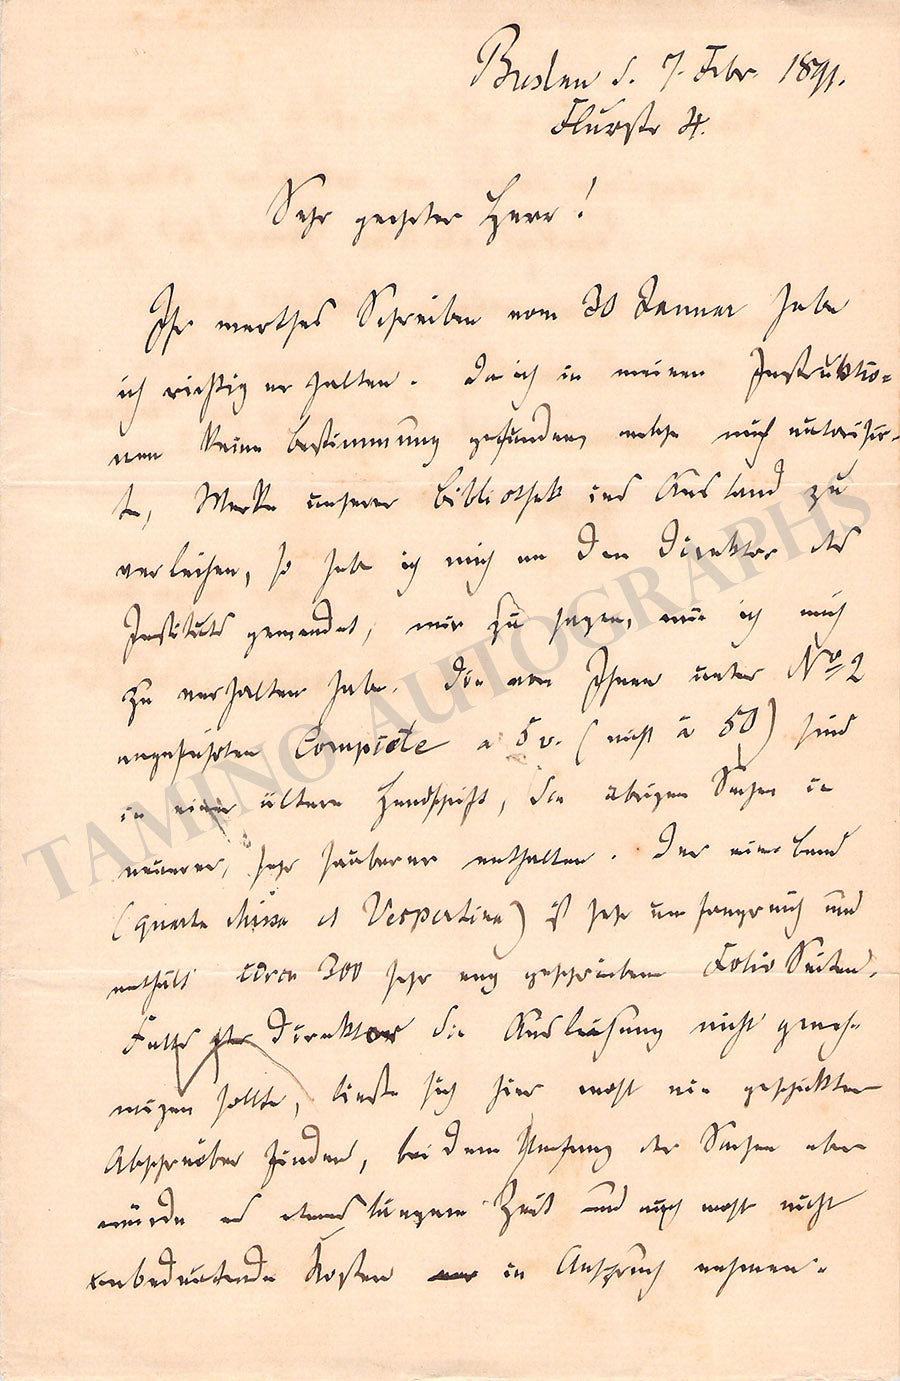 Breslau d. 7. Febr. 1891.
Flurstr 4.
Sehr geehrter Herr!
Ihr werthes Schreiben vom 30 Januar habe
ich richtig erhalten. Da ich in meinen Instruktio-
nen keine Bestimmung gefunden, welche mich autorisir-
te, Werke unserer Bibliothek ins Ausland zu
verleihen, so habe ich mich an den Direktor des
Instituts gewendet, mir zu sagen, wie ich mich
zu verhalten habe. Die von Ihnen unter No 2
angeführten Compiete a 5 v. (nicht à 50) sind
in einer ältern Handschrift, die übrigen Sachen in
neuerer, sehr sauberer enthalten. Der eine Band
(quarta Missa et Vespertina) ist sehr umfangreich und
enthält circa 300 sehr eng geschriebene Folio Seiten.
Falls der Direktor die Ausleihung nicht geneh-
migen sollte, ließe sich hier wohl ein geschickter
Abschreiber finden, bei dem Umfang der Sachen aber
würde es etwas längere Zeit und auch wohl nicht
unbedeutende Kosten in Anspruch nehmen.
TAMINO AUTOGRAPHS